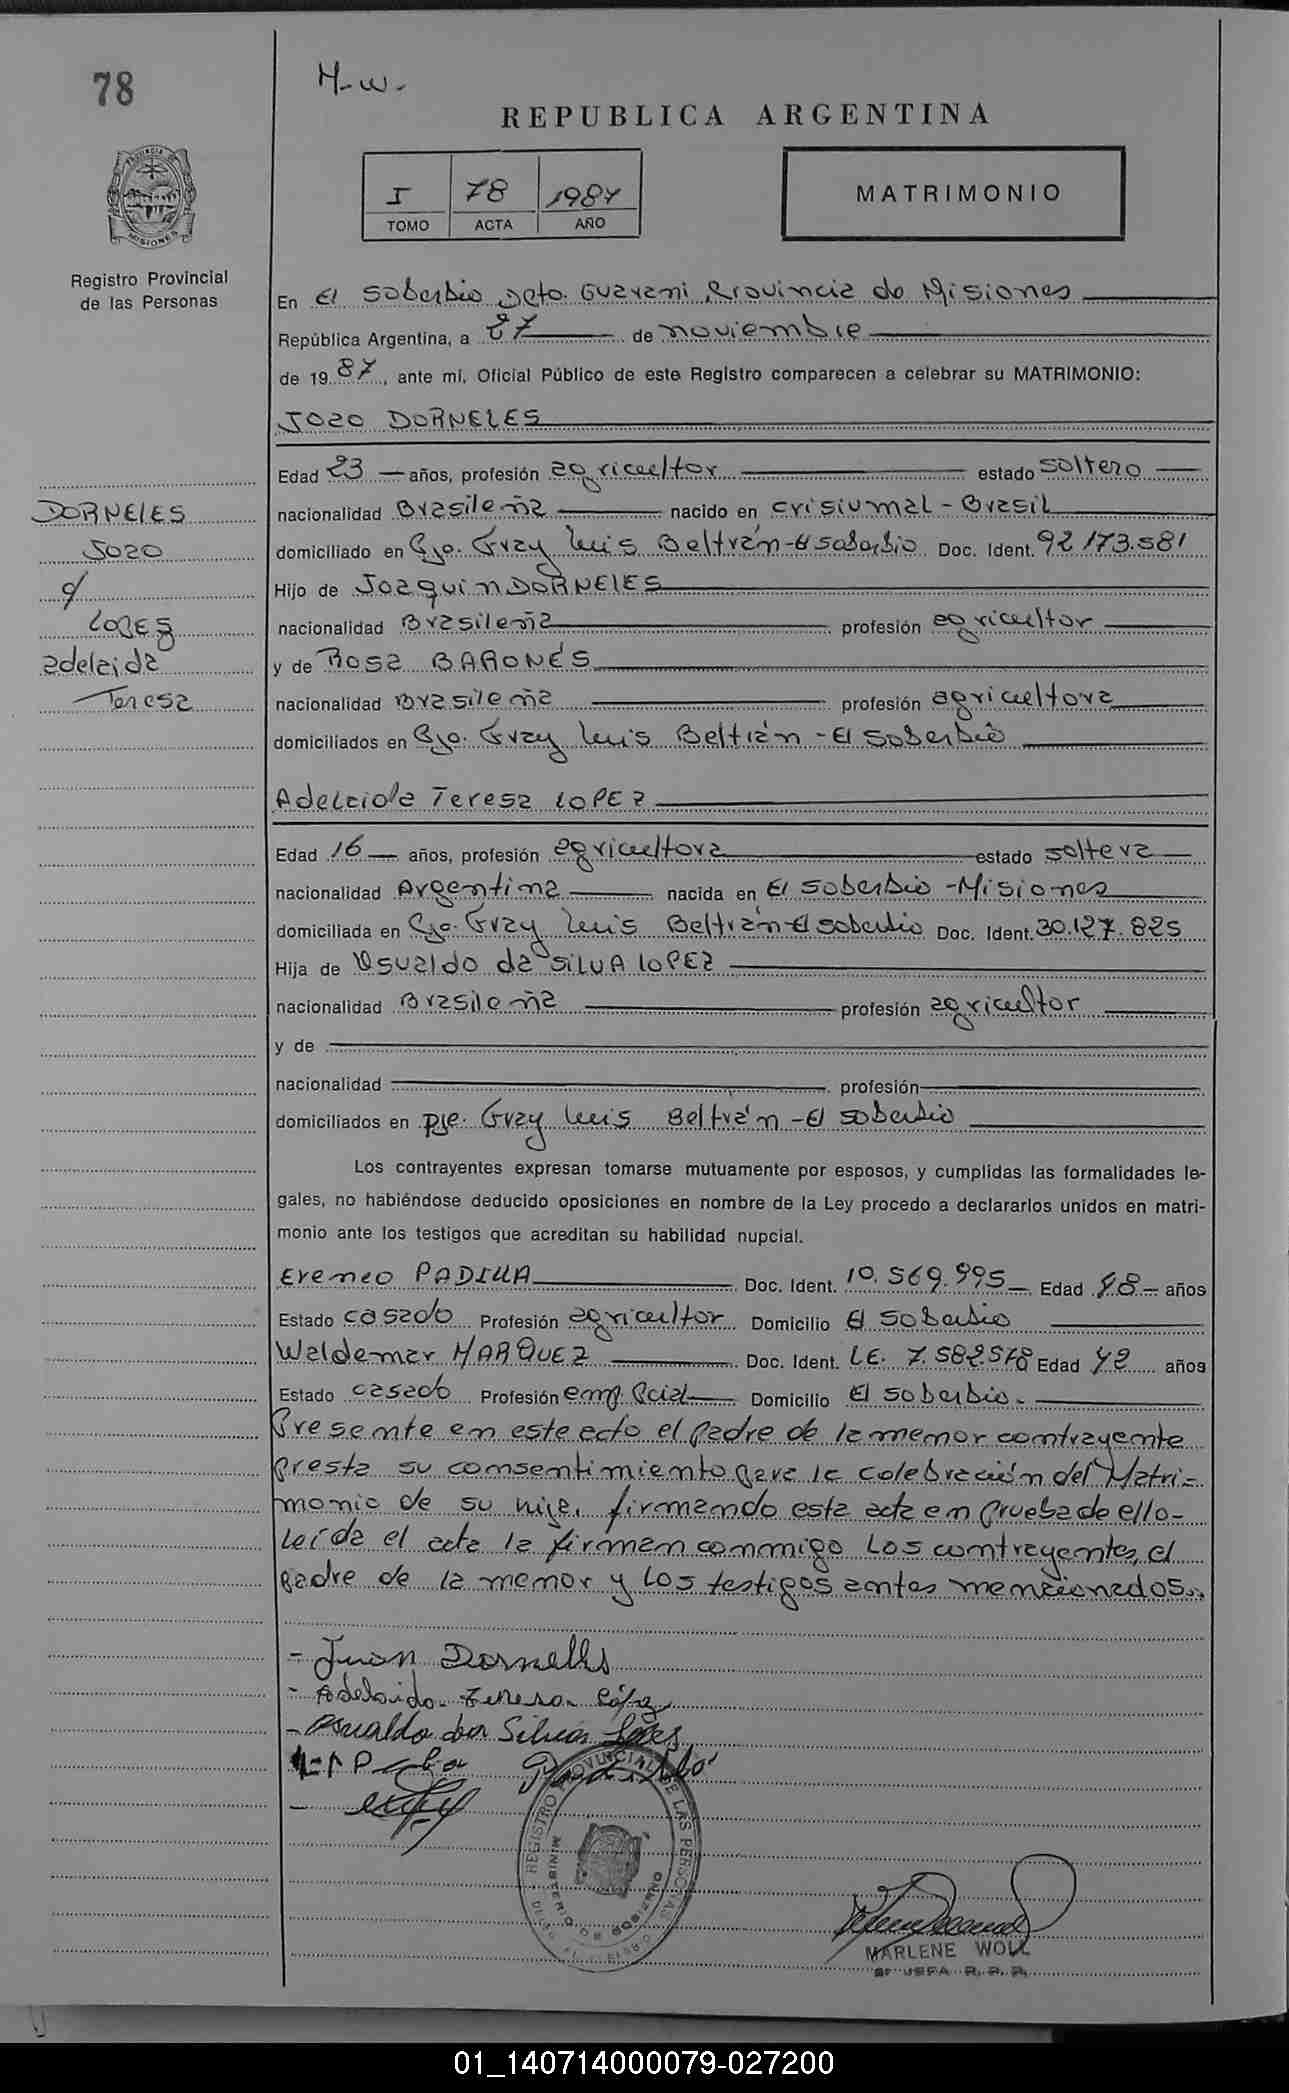 78
M-w-
REPUBLICA ARGENTINA
I 78 1987
TOMO ACTA AÑO
MATRIMONIO
PROVINCIA DE MISIONES
Registro Provincial
de las Personas
En El Soberbio Dcto. Guarani, Provincia de Misiones
República Argentina, a 27 de noviembre
de 19 87, ante mí, Oficial Público de este Registro comparecen a celebrar su MATRIMONIO:
Joao DORNELES
Edad 23 años, profesión agricultor estado soltero
DORNELES
nacionalidad Brasileña nacido en Crisiumal - Brasil
Joao
domiciliado en Pje. Fray Luis Beltrán - El Soberbio Doc. Ident. 92.173.581
c/
Hijo de Joaquin DORNELES
LOPEZ
nacionalidad Brasileña profesión agricultor
adelaida
y de Rosa BARONÉS
Teresa
nacionalidad Brasileña profesión agricultora
domiciliados en Pje. Fray Luis Beltrán - El Soberbio
Adelaida Teresa LOPEZ
Edad 16 años, profesión agricultora estado soltera
nacionalidad Argentina nacida en El Soberbio - Misiones
domiciliada en Pje. Fray Luis Beltrán - El Soberbio Doc. Ident. 30.127.825
Hija de Osualdo da SILVA LOPEZ
nacionalidad Brasileña profesión agricultor
y de
nacionalidad profesión
domiciliados en pje. Fray Luis Beltrán - El Soberbio
Los contrayentes expresan tomarse mutuamente por esposos, y cumplidas las formalidades le-
gales, no habiéndose deducido oposiciones en nombre de la Ley procedo a declararlos unidos en matri-
monio ante los testigos que acreditan su habilidad nupcial.
Ereneo PADILLA Doc. Ident. 10.569.995 Edad 48 años
Estado casado Profesión agricultor Domicilio El Soberbio
Waldemar MARQUEZ Doc. Ident. L.E. 7.582.578 Edad 42 años
Estado casado Profesión emp. Pcial Domicilio El Soberbio.
Presente en este acto el padre de la menor contrayente
presta su consentimiento para la celebración del Matri-
monio de su hija, firmando esta acta en prueba de ello-
Leída el acta la firman conmigo los contrayentes, el
padre de la menor y los testigos antes mencionados..
- Juan Dornelles
- Adelaida Teresa López
- Osualdo da Silva Lopes
REGISTRO PROVINCIAL DE LAS PERSONAS
MINISTERIO DE GOBIERNO
MARLENE WOLL
JEFA R. P. P.
01_140714000079-027200